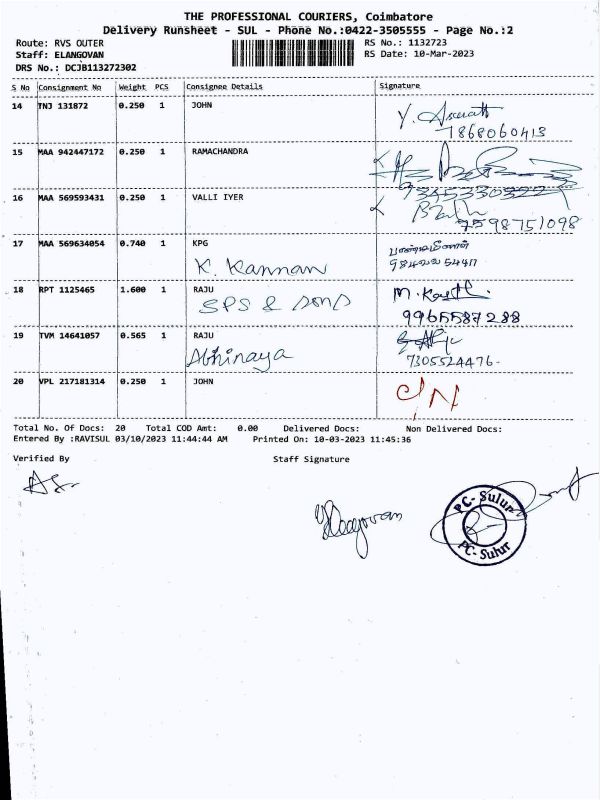 THE PROFESSIONAL COURIERS, Coimbatore
Delivery Runsheet - SUL - Phone No.:0422-3505555 - Page No.:2
Route: RVS OUTER RS No.: 1132723
Staff: ELANGOVAN RS Date: 10-Mar-2023
DRS No.: DCJB113272302
S No Consignment No Weight PCS Consignee Details Signature
14 TNJ 131872 0.250 1 JOHN
7868060413
15 MAA 942447172 0.250 1 RAMACHANDRA
9345330322
16 MAA 569593431 0.250 1 VALLI IYER
9598751098
17 MAA 569634054 0.740 1 KPG
K. Kannan
18 RPT 1125465 1.600 1 RAJU
SPS & SONS
9965587288
19 TVM 14641057 0.565 1 RAJU
Abhinaya 7305524476.
20 VPL 217181314 0.250 1 JOHN C/N
Total No. Of Docs: 20 Total COD Amt: 0.00 Delivered Docs: Non Delivered Docs:
Entered By :RAVISUL 03/10/2023 11:44:44 AM Printed On: 10-03-2023 11:45:36
Verified By Staff Signature
PC-Sulur
PC-Sulur